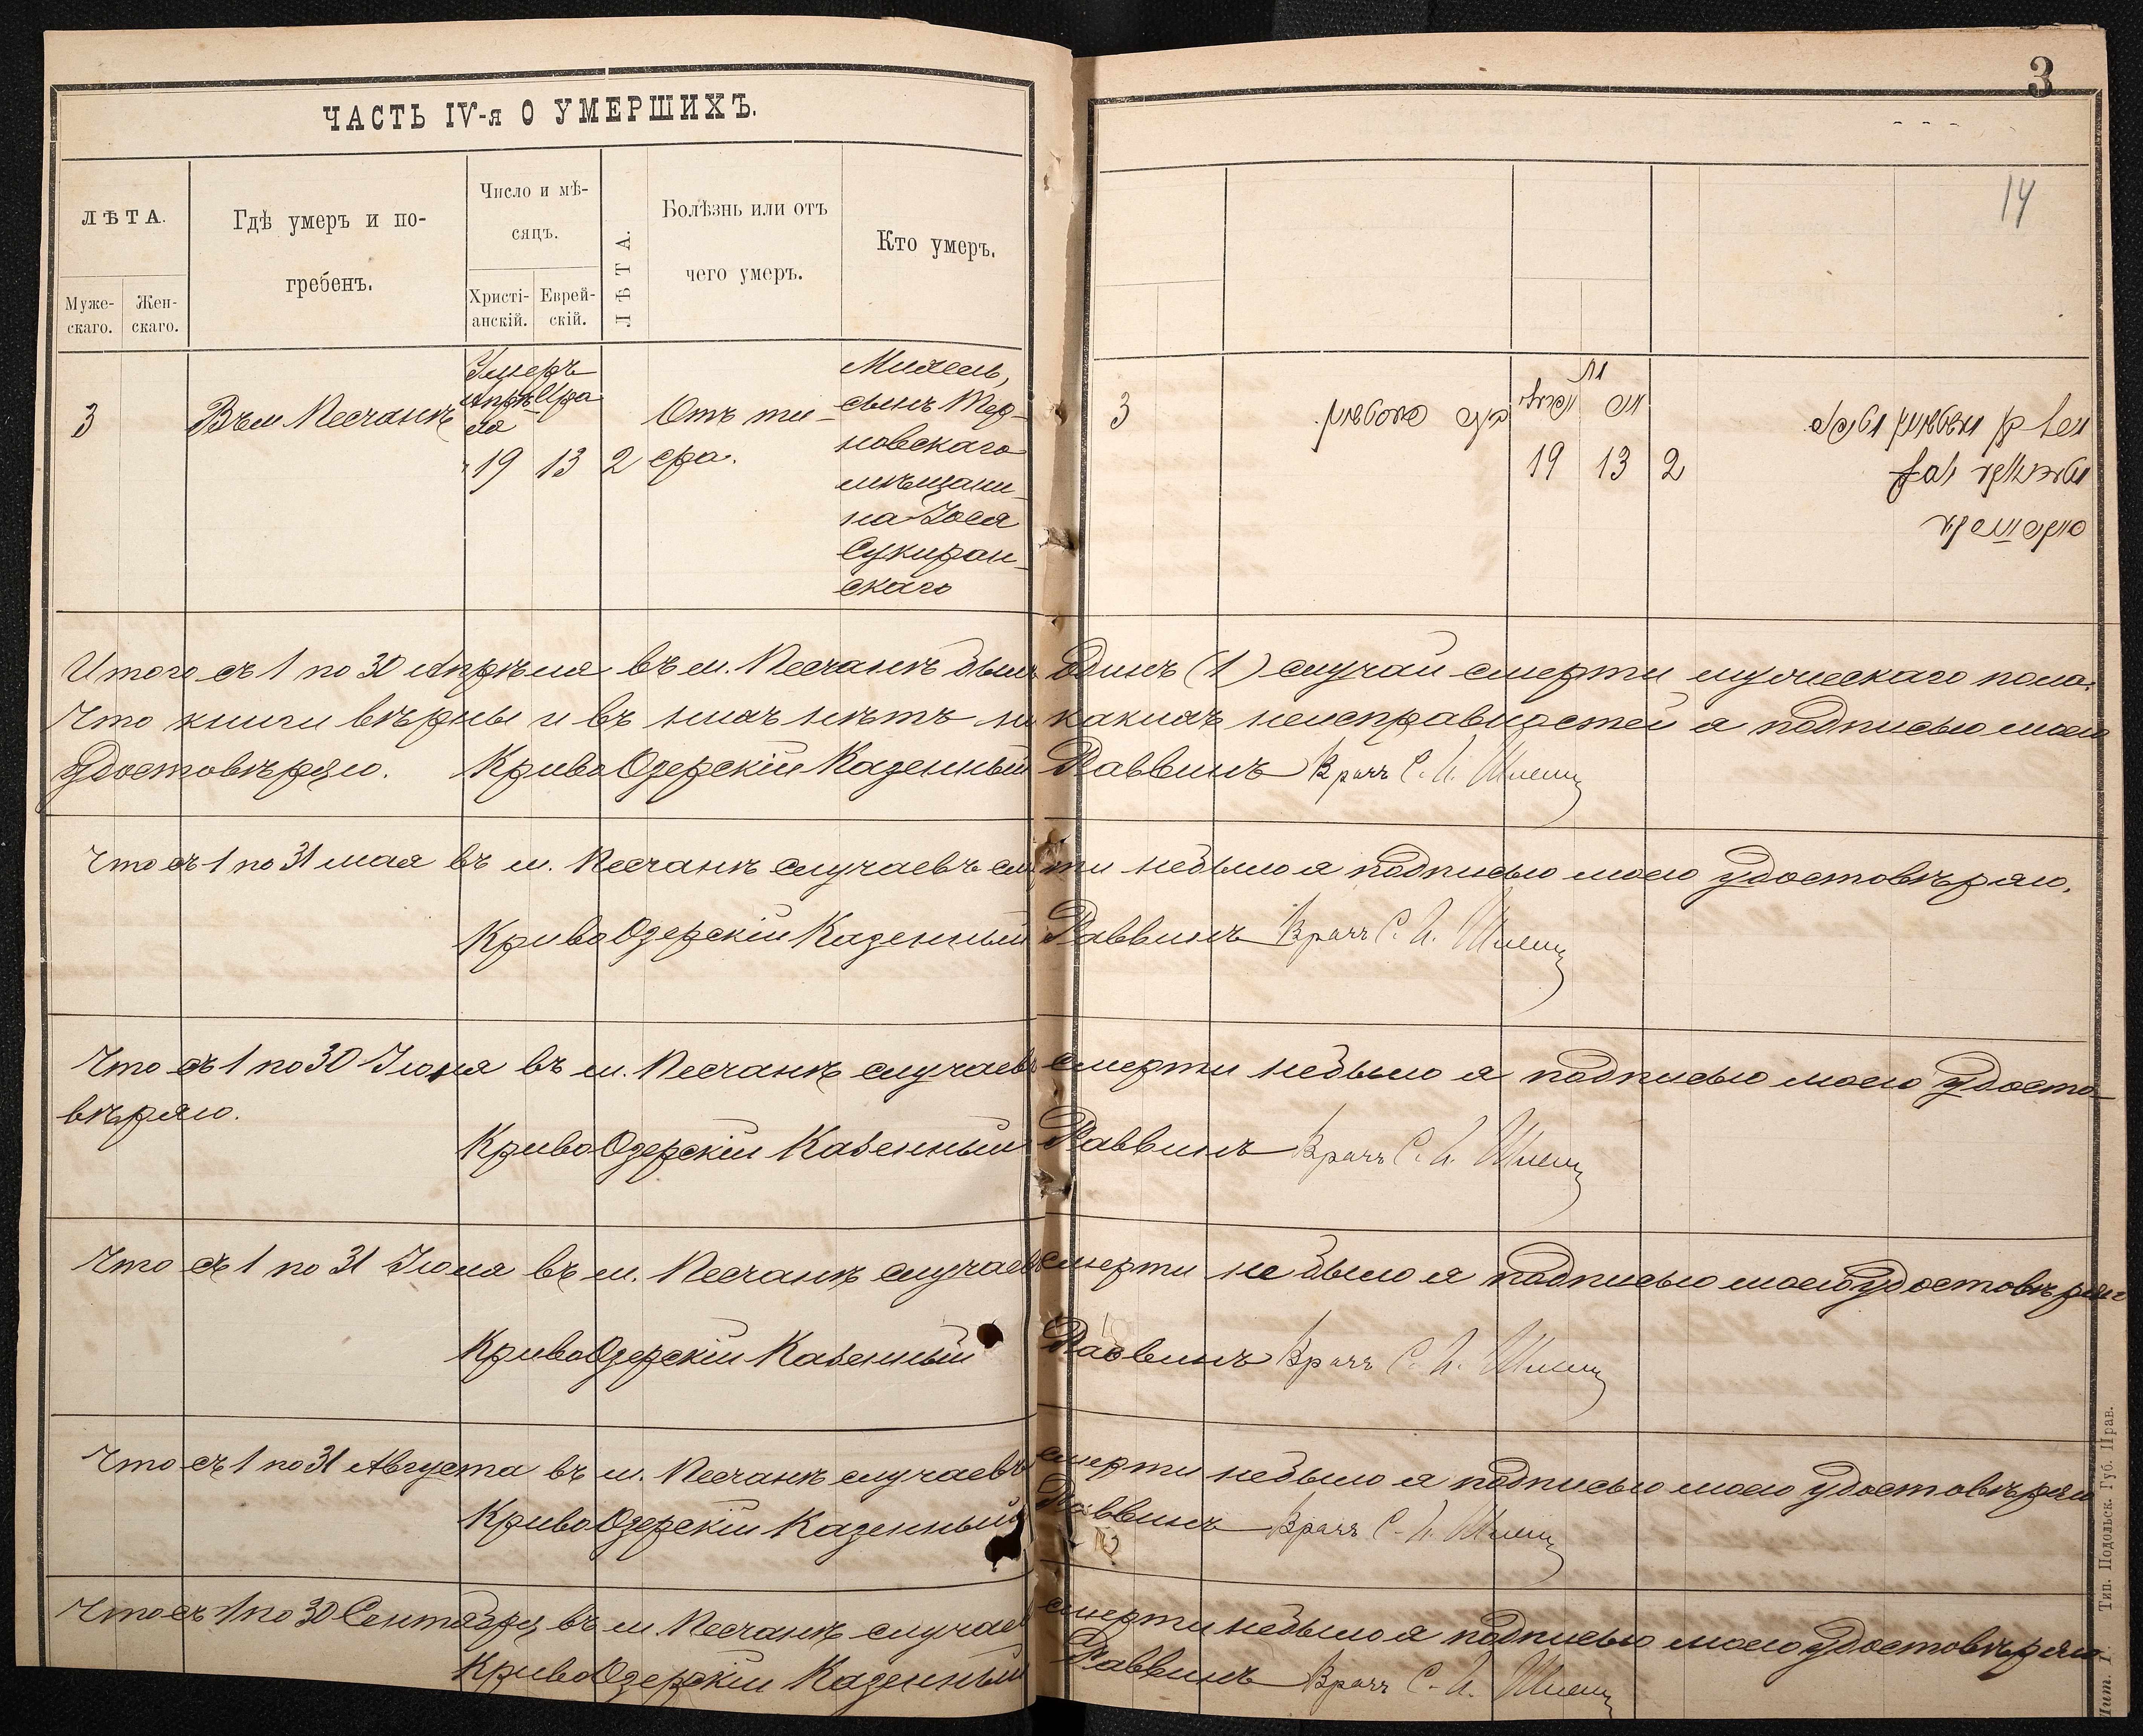 ЧАСТЬ IV-я О УМЕРШИХЪ.
ЛѢТА.
Муже-
скаго.
Жен-
скаго.
Гдѣ умеръ и по-
гребенъ.
Число и мѣ-
сяцъ.
Христі-
анскій.
Еврей-
скій.
ЛѢТА.
Болѣзнь или отъ
чего умеръ.
Кто умеръ.
3
Въ м. Песчанкѣ
Умеръ
Апрѣ- Ира
ля
19 13 2
Отъ ти-
фа.
сынъ Тер-
новскаго
мѣщани-
на Іося
скаго
3
14
3
19 13 2
Итого съ 1 по 30 Апрѣля въ м. Песчанкѣ былъ одинъ (1) случай смерти мужескаго пола.
Что книги вѣрны и въ нихъ нѣтъ ни какихъ неисправностей я подписью моею
удостовѣряю. КривоОзерскій Казенный Раввинъ Врачъ С. И.
Что съ 1 по 31 мая въ м. Песчанкѣ случаевъ см ти небыло я подписью моею удостовѣряю.
КривоОзерскій Казенный Раввинъ Врачъ С. И.
Что съ 1 по 30 Іюня въ м. Песчанкѣ случаевъ смерти небыло я подписью моею удосто-
вѣряю.
КривоОзерскій Казенный Раввинъ Врачъ С. И.
Что съ 1 по 31 Іюля въ м. Песчанкѣ случаевъ смерти не было я подписью моею удостовѣряю
КривоОзерскій Казенный Раввинъ Врачъ С. И.
Что съ 1 по 31 Августа въ м. Песчанкѣ случаевъ смерти небыло я подписью моею удостовѣряю
КривоОзерскій Казенный Раввинъ Врачъ С. И.
Что съ 1 по 30 Сентября въ м. Песчанкѣ случаев смерти небыло я подписью моею удостовѣряю
КривоОзерскій Казенный Раввинъ Врачъ С. И.
Лит. Г. Тип. Подольск. Губ. Прав.